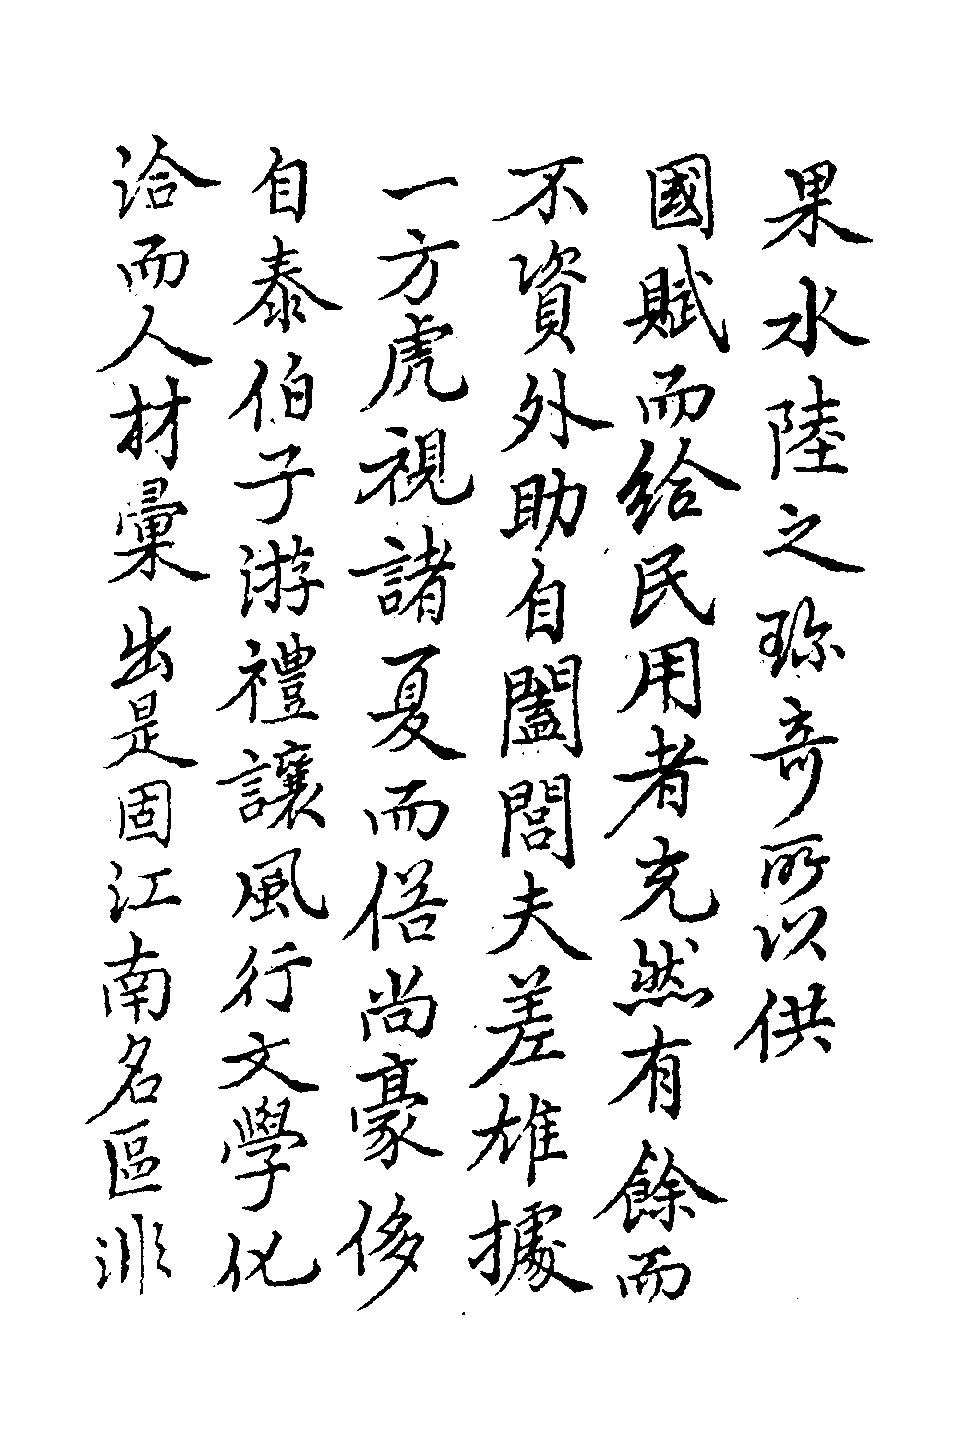 果水陸之珎奇所以供
國賦而給民用者充然有餘而
不資外助自闔閭夫差雄據
一方虎視諸夏而俗尚豪侈
自泰伯子游禮讓風行文學化
洽而人材彙出是固江南名區非